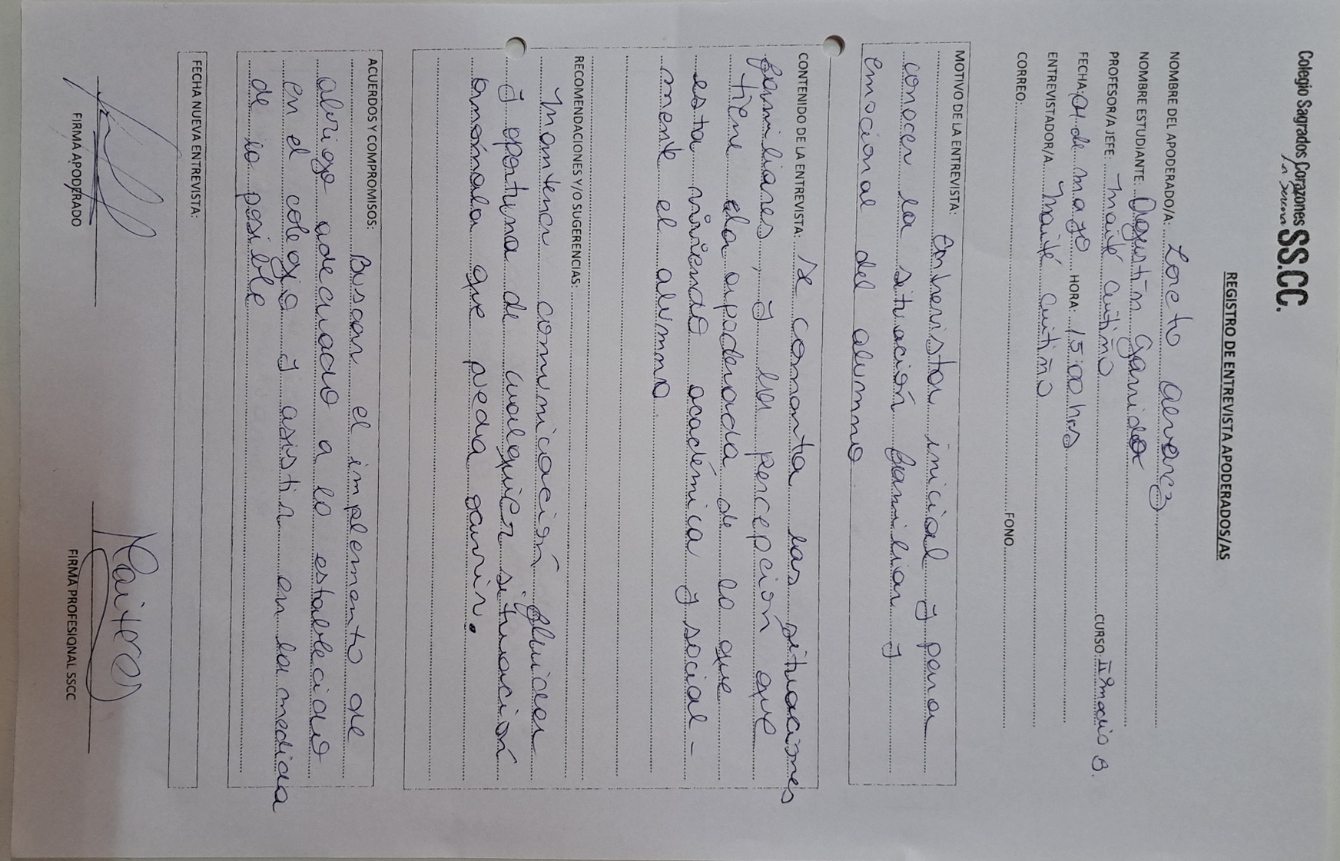 Colegio Sagrados Corazones SS.CC.
REGISTRO DE ENTREVISTA APODERADOS/AS
NOMBRE DEL APODERADO/A: Loreto Alvarez
NOMBRE ESTUDIANTE: Agustín Garrido
PROFESOR/A JEFE: Maité Cutiño CURSO: II°medio B.
FECHA: 04 de mayo HORA: 15:00 hrs
ENTREVISTADOR/A Maité Cutiño
CORREO: FONO
MOTIVO DE LA ENTREVISTA: Entrevista inicial y para
conocer la situación familiar y
emocional del alumno
CONTENIDO DE LA ENTREVISTA: Se comenta las situaciones
familiares, y la percepción que
tiene la apoderada de lo que
esta viviendo académica y social-
mente el alumno.
RECOMENDACIONES Y/O SUGERENCIAS:
Mantener comunicación fluida
y oportuna de cualquier situación
anómala que pueda ocurrir.
ACUERDOS Y COMPROMISOS: Buscar el implemento de
abrigo adecuado a lo establecido
en el colegio y asistir en la medida
de lo posible
FECHA NUEVA ENTREVISTA:
FIRMA APODERADO FIRMA PROFESIONAL SSCC